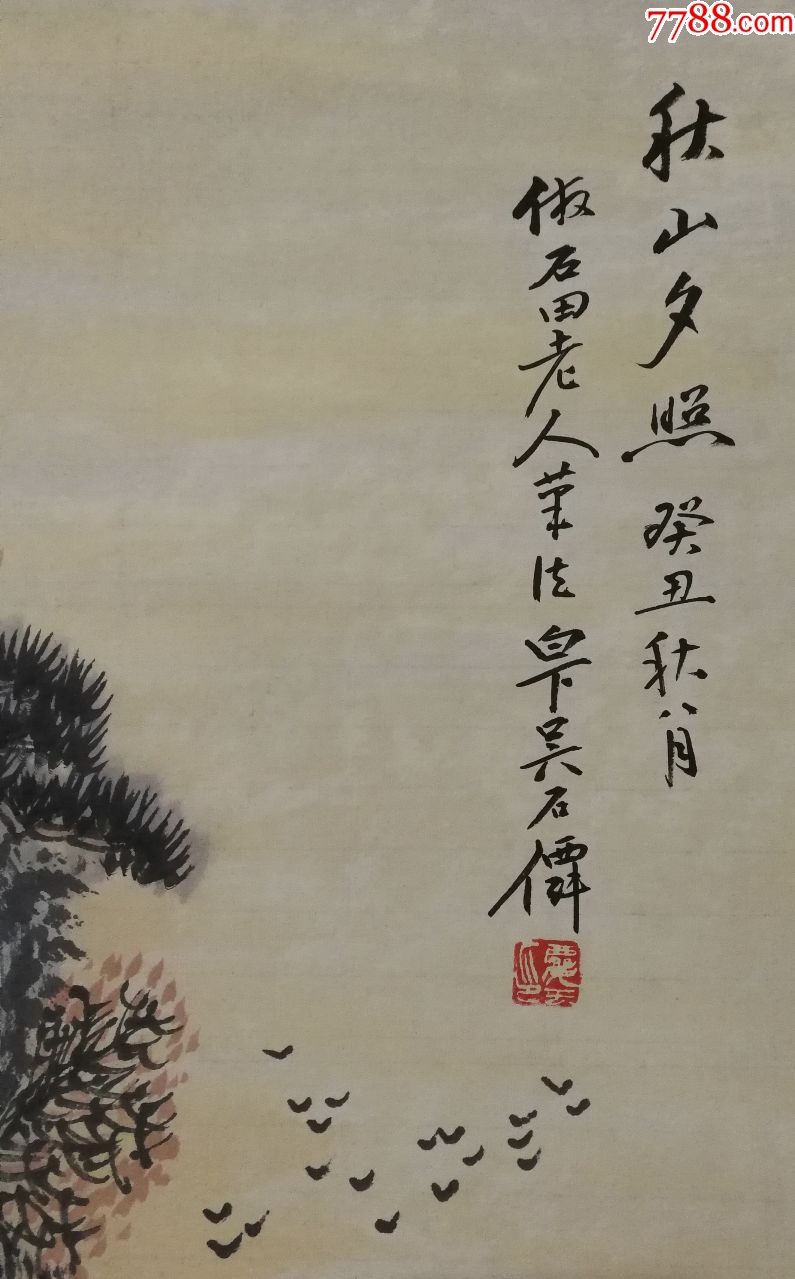 7788.com
秋山夕照 癸丑秋八月
倣石田老人筆法 白下吴石僊
慶云